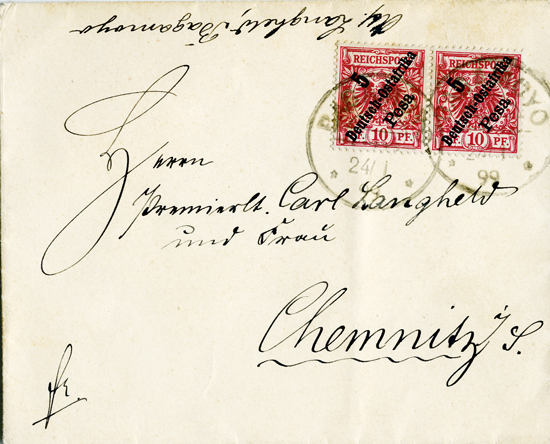 Langheld, Bagamoyo
REICHSPOST
5
Deutsch-Ostafrika
Pesa
10 PF.
REICHSPOST
5
Deutsch-Ostafrika
Pesa
10 PF.
24/1
99
Herrn
Premierlt. Carl Langheld
und Frau
Chemnitz i/S.
fr.